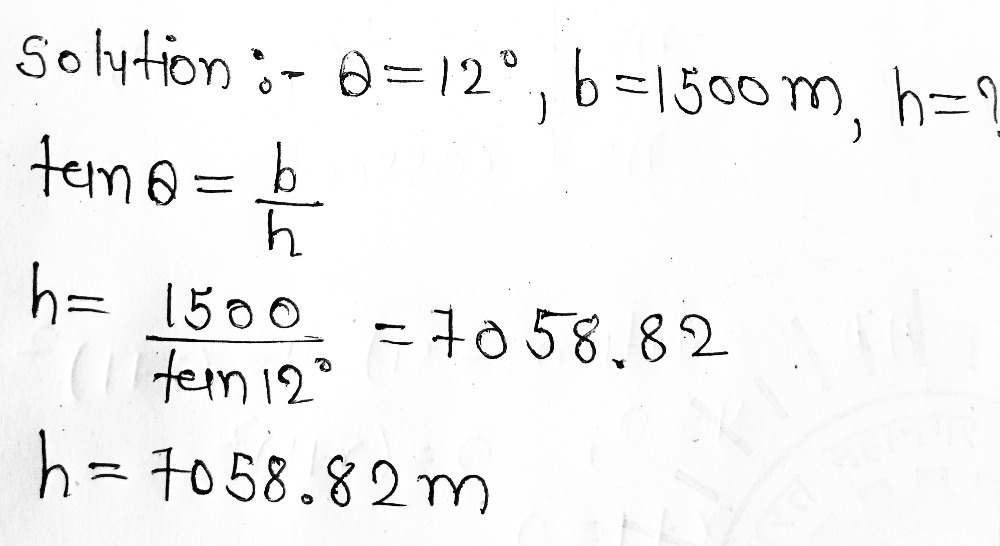 Solution :- θ = 12°, b = 1500 m, h = ?
tan θ = b/h
h = 1500/tan 12° = 7058.82
h = 7058.82 m